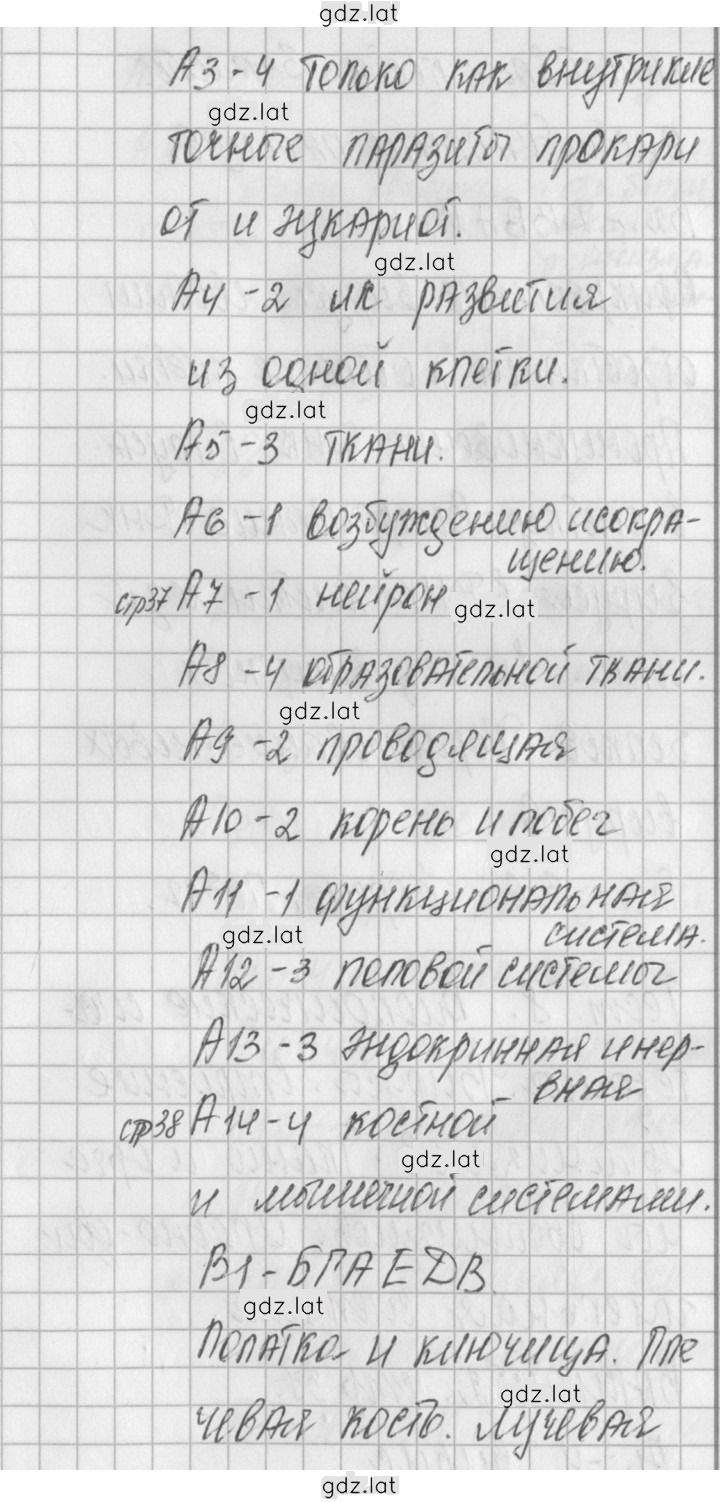 gdz.lat
А3-4 только как внутрикле
gdz.lat
точные паразиты прокари
от и эукариот.
gdz.lat
А4-2 их развития
из одной клетки.
gdz.lat
А5-3 ткани.
А6-1 возбуждению и сокра-
щению.
стр37 А7-1 нейрон
gdz.lat
А8-4 образовательной ткани.
gdz.lat
А9-2 проводящая
А10-2 корень и побег
gdz.lat
А11-1 функциональная
gdz.lat система.
А12-3 половой системы
А13-3 эндокринная и нер-
вная
стр38 А14-4 костной
gdz.lat
и мышечной системами.
В1-БГАЕДВ.
gdz.lat
Лопатка и ключица. Пле
gdz.lat
чевая кость. Лучевая
gdz.lat